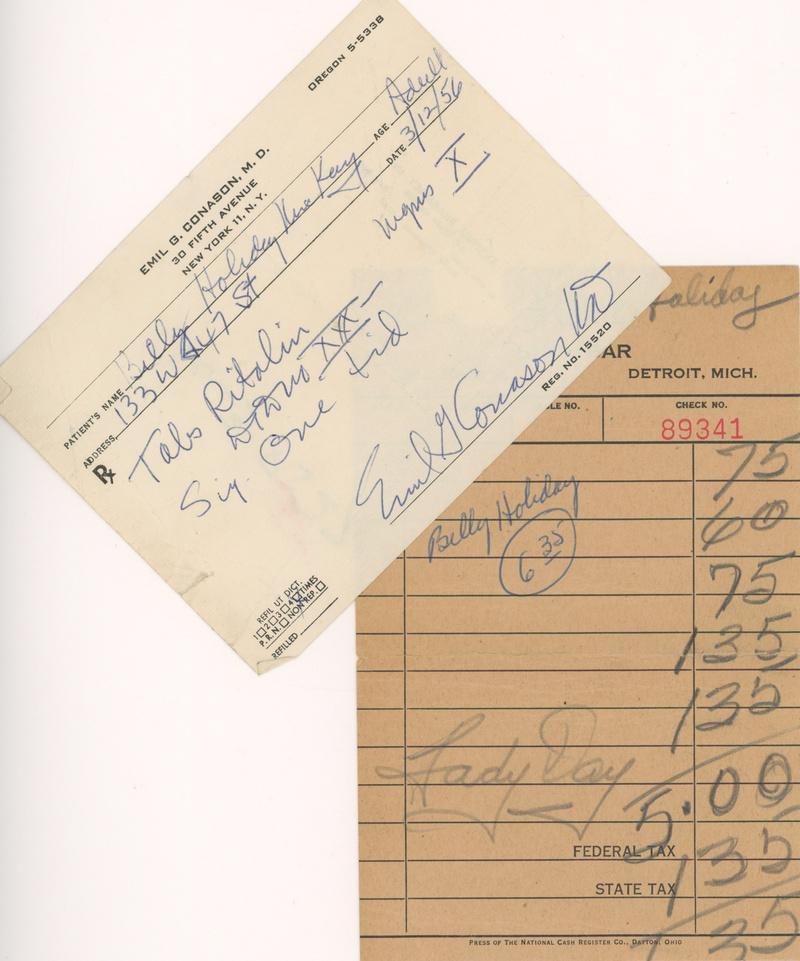 OREGON 5-5338
EMIL G. CONASON, M. D.
30 FIFTH AVENUE
NEW YORK 11, N. Y.
PATIENT'S NAME Billy Holiday Kay AGE Adult
ADDRESS 133 W 47 St DATE 3/12/56
Rx
Tabs Ritalin mgms X
XXX
Sig. One tid
Emil G Conason MD
REG. NO. 15520
REFIL UT DICT.
1 2 3 4 TIMES
P.R.N. NON REP.
REFILLED
Holiday
AR
DETROIT, MICH.
LE NO. CHECK NO.
89341
75
Billy Holiday 60
6 35 75
135
135
Lady Day
5.00
FEDERAL TAX 135
STATE TAX
35
PRESS OF THE NATIONAL CASH REGISTER CO., DAYTON, OHIO